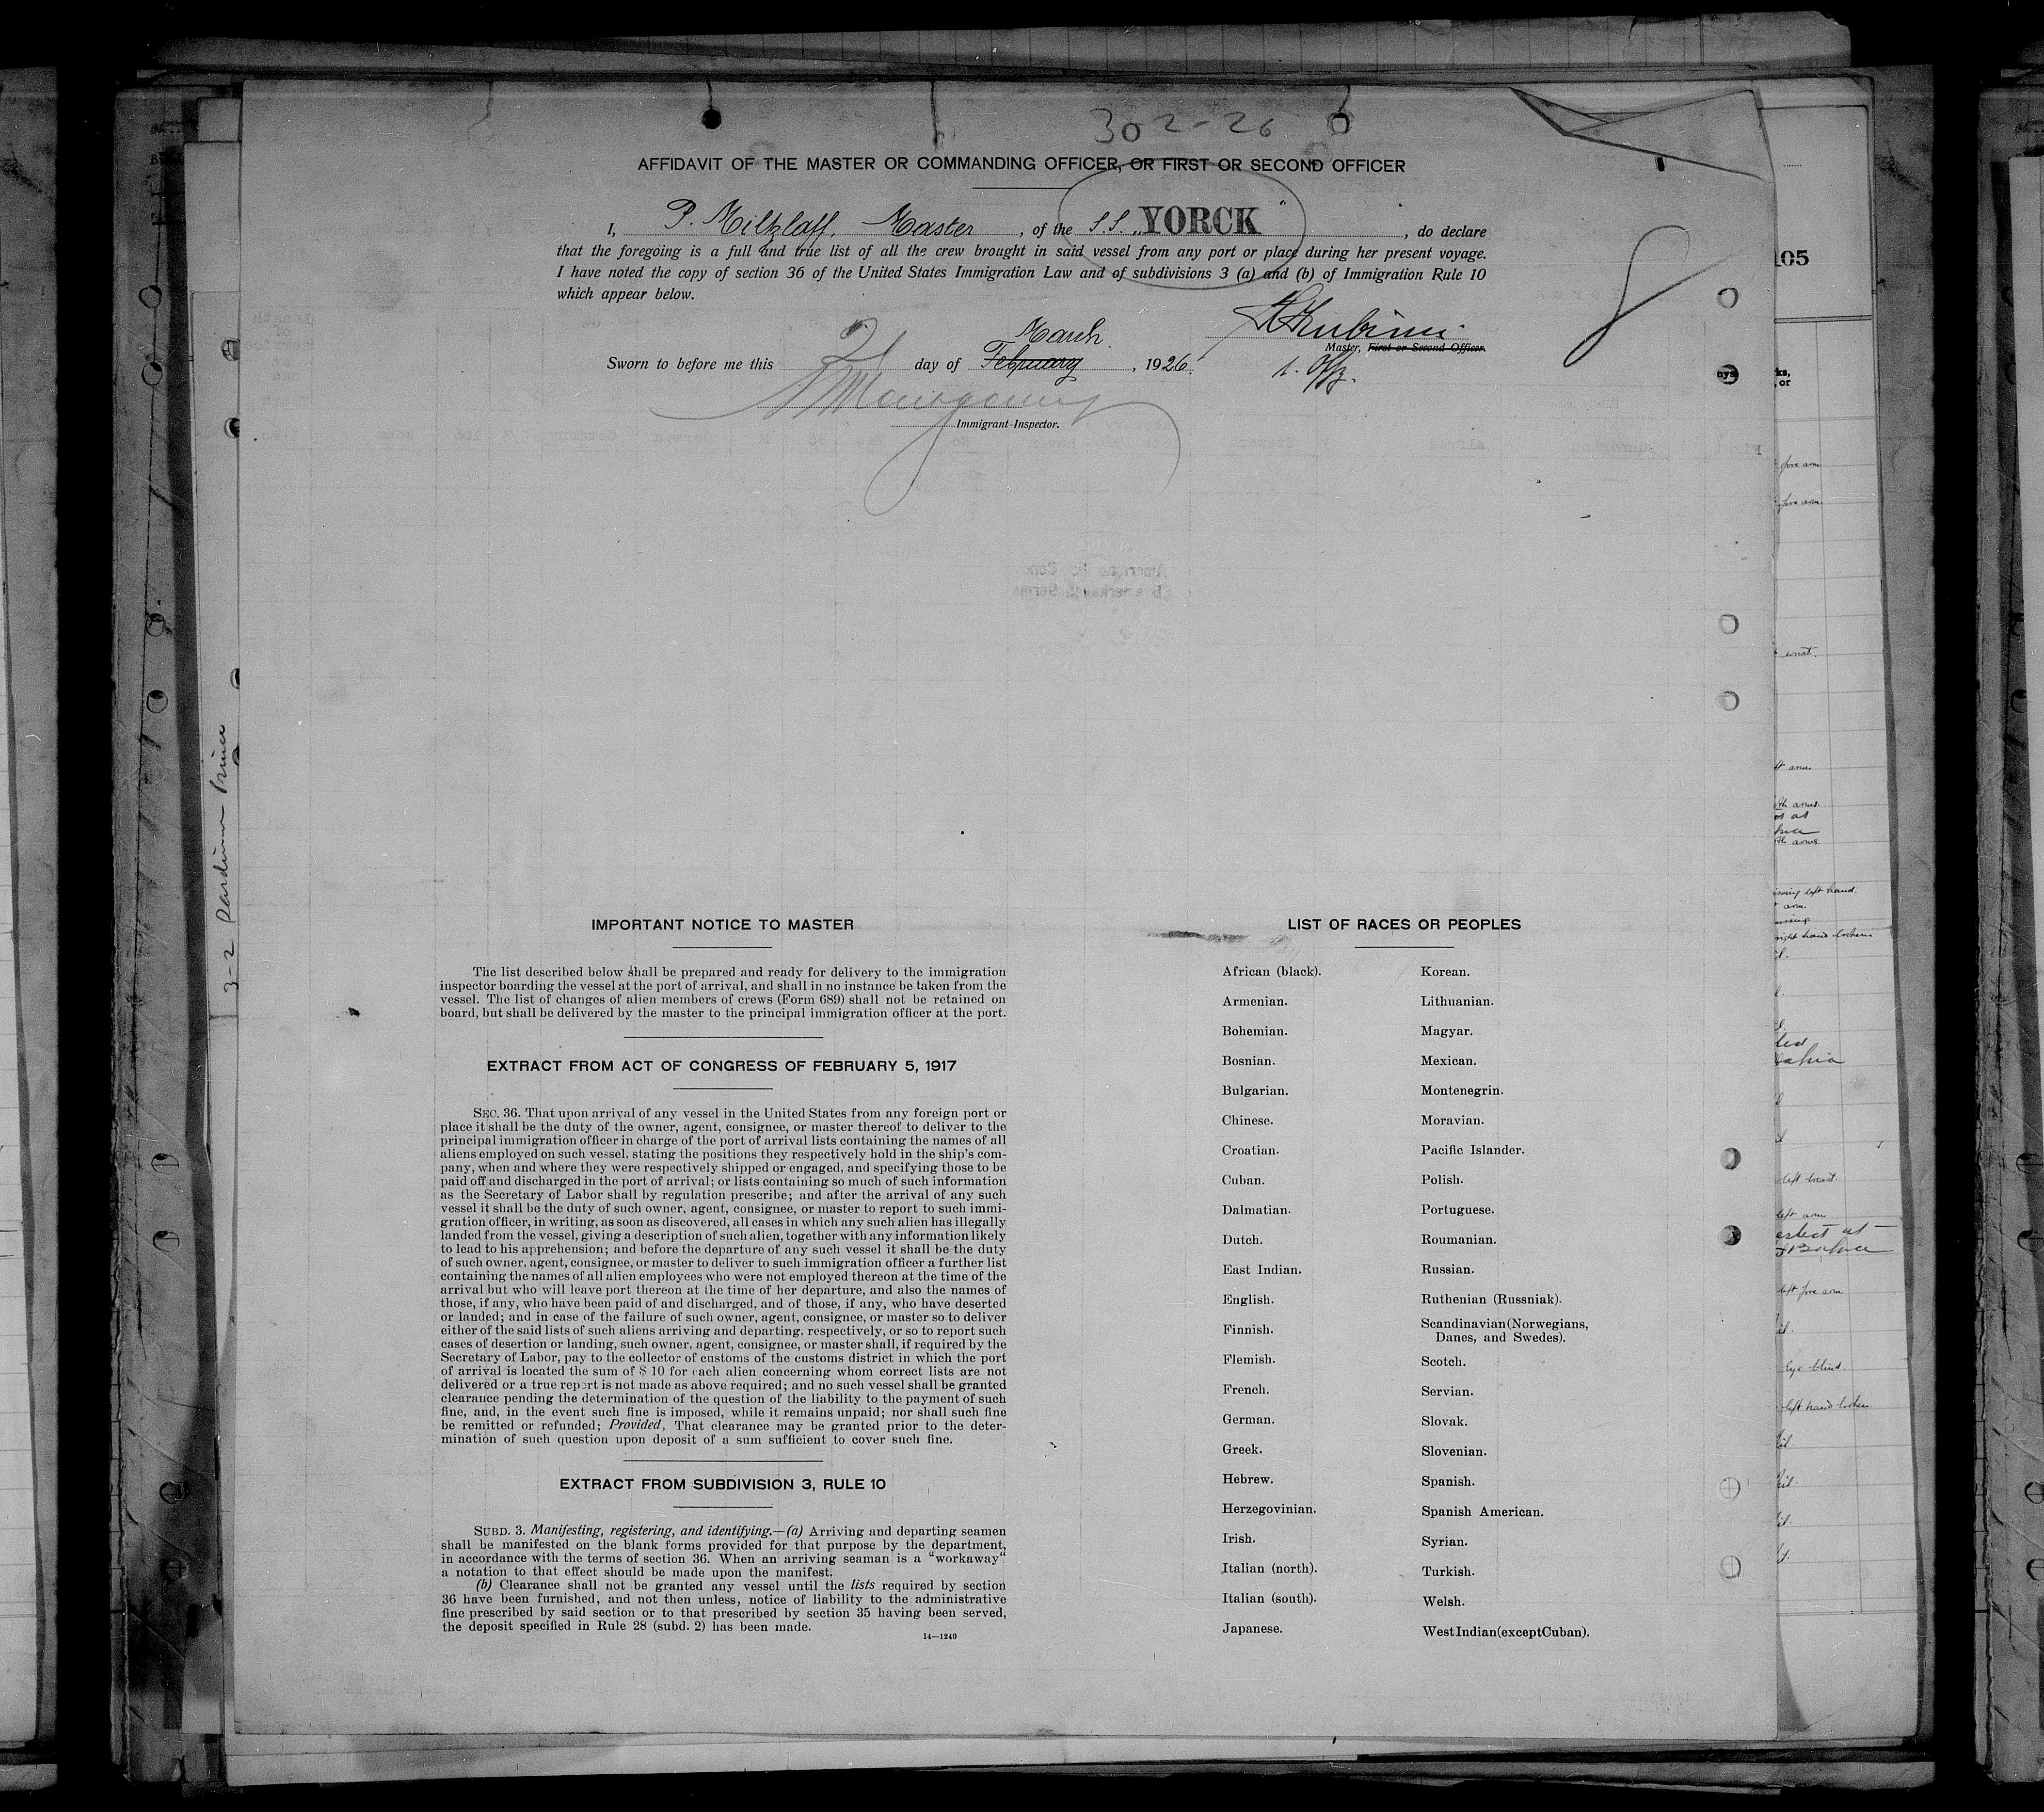 302-26
AFFIDAVIT OF THE MASTER OR COMMANDING OFFICER, OR FIRST OR SECOND OFFICER
I, P. Miltzlaff, Master, of the S.S. „YORCK", do declare
that the foregoing is a full and true list of all the crew brought in said vessel from any port or place during her present voyage.
I have noted the copy of section 36 of the United States Immigration Law and of subdivisions 3 (a) and (b) of Immigration Rule 10
which appear below.
March
Master, First or Second Officer.
Sworn to before me this 2 day of February, 1926.
1. Offz.
Immigrant Inspector.
105
fore arm
fore arm
3-2 Sardinian Prince
IMPORTANT NOTICE TO MASTER
The list described below shall be prepared and ready for delivery to the immigration
inspector boarding the vessel at the port of arrival, and shall in no instance be taken from the
vessel. The list of changes of alien members of crews (Form 689) shall not be retained on
board, but shall be delivered by the master to the principal immigration officer at the port.
EXTRACT FROM ACT OF CONGRESS OF FEBRUARY 5, 1917
SEC. 36. That upon arrival of any vessel in the United States from any foreign port or
place it shall be the duty of the owner, agent, consignee, or master thereof to deliver to the
principal immigration officer in charge of the port of arrival lists containing the names of all
aliens employed on such vessel, stating the positions they respectively hold in the ship's com-
pany, when and where they were respectively shipped or engaged, and specifying those to be
paid off and discharged in the port of arrival; or lists containing so much of such information
as the Secretary of Labor shall by regulation prescribe; and after the arrival of any such
vessel it shall be the duty of such owner, agent, consignee, or master to report to such immi-
gration officer, in writing, as soon as discovered, all cases in which any such alien has illegally
landed from the vessel, giving a description of such alien, together with any information likely
to lead to his apprehension; and before the departure of any such vessel it shall be the duty
of such owner, agent, consignee, or master to deliver to such immigration officer a further list
containing the names of all alien employees who were not employed thereon at the time of the
arrival but who will leave port thereon at the time of her departure, and also the names of
those, if any, who have been paid of and discharged, and of those, if any, who have deserted
or landed; and in case of the failure of such owner, agent, consignee, or master so to deliver
either of the said lists of such aliens arriving and departing, respectively, or so to report such
cases of desertion or landing, such owner, agent, consignee, or master shall, if required by the
Secretary of Labor, pay to the collector of customs of the customs district in which the port
of arrival is located the sum of $ 10 for each alien concerning whom correct lists are not
delivered or a true report is not made as above required; and no such vessel shall be granted
clearance pending the determination of the question of the liability to the payment of such
fine, and, in the event such fine is imposed, while it remains unpaid; nor shall such fine
be remitted or refunded; Provided, That clearance may be granted prior to the deter-
mination of such question upon deposit of a sum sufficient to cover such fine.
EXTRACT FROM SUBDIVISION 3, RULE 10
SUBD. 3. Manifesting, registering, and identifying.—(a) Arriving and departing seamen
shall be manifested on the blank forms provided for that purpose by the department,
in accordance with the terms of section 36. When an arriving seaman is a "workaway"
a notation to that effect should be made upon the manifest.
(b) Clearance shall not be granted any vessel until the lists required by section
36 have been furnished, and not then unless, notice of liability to the administrative
fine prescribed by said section or to that prescribed by section 35 having been served,
the deposit specified in Rule 28 (subd. 2) has been made.
14—1240
LIST OF RACES OR PEOPLES
African (black).
Armenian.
Bohemian.
Bosnian.
Bulgarian.
Chinese.
Croatian.
Cuban.
Dalmatian.
Dutch.
East Indian.
English.
Finnish.
Flemish.
French.
German.
Greek.
Hebrew.
Herzegovinian.
Irish.
Italian (north).
Italian (south).
Japanese.
Korean.
Lithuanian.
Magyar.
Mexican.
Montenegrin.
Moravian.
Pacific Islander.
Polish.
Portuguese.
Roumanian.
Russian.
Ruthenian (Russniak).
Scandinavian(Norwegians,
Danes, and Swedes).
Scotch.
Servian.
Slovak.
Slovenian.
Spanish.
Spanish American.
Syrian.
Turkish.
Welsh.
WestIndian(exceptCuban).